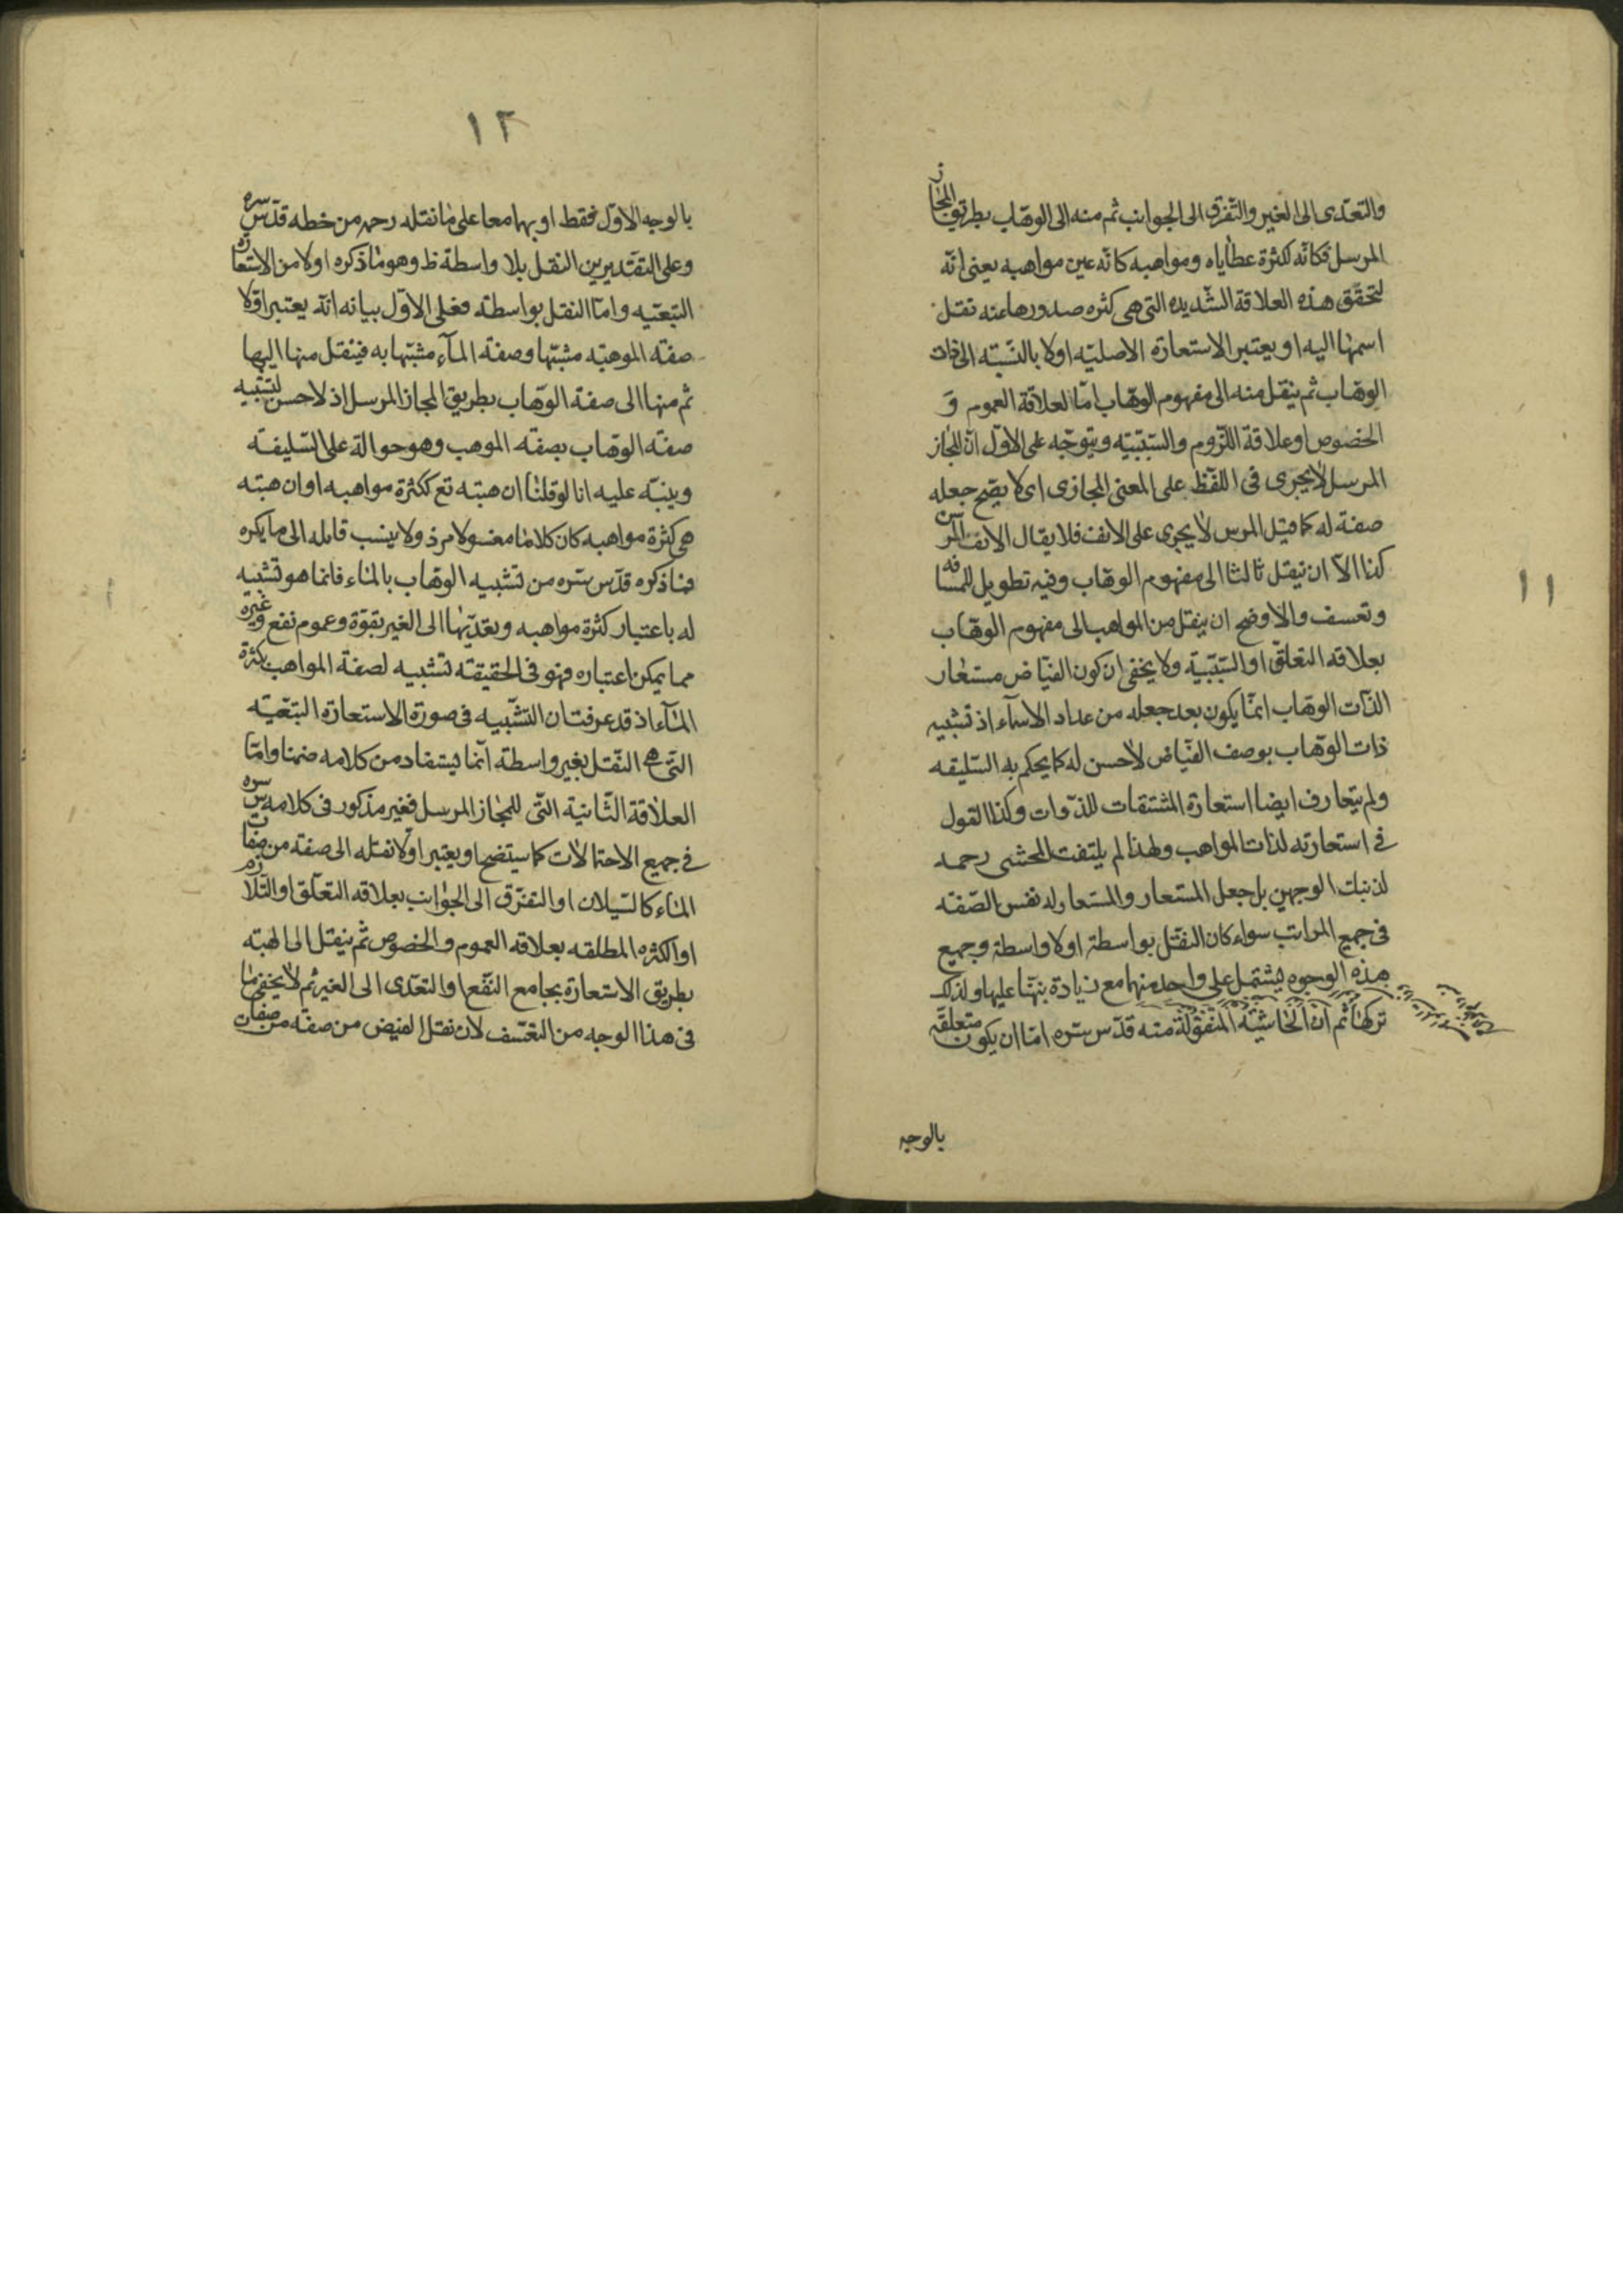 والتعدّى الى الغير والتفرق الى الجوانب ثم منه الى الوهّاب بطريق المجاز
المرسل فكانّه لكثرة عطاياه ومواهبه كانّه عين مواهبه يعنى انّه
لتحقّق هذه العلاقة الشّديده التى هى كثره صدورها عنه نقل
اسمها اليه او يعتبر الاستعارة الاصليّه اولا بالنّسبّه الى ذات
الوهّاب ثم ينقل منه الى مفهوم الوهّاب امّا لعلاقة العموم و
الخصوص او علاقة اللّزوم والسّببيّه ويتوجّه على الاوّل انّ المجاز
المرسل لا يجرى فى اللّفظ على المعنى المجازى اى لا يصّح جعله
صفة له كما قيل المرسن لا يجرى على الانف فلا يقال الانف المرسن
كذا الّا ان ينقل ثالثا الى مفهوم الوهّاب وفيه تطويل للمسافه
وتعسف والاوضح ان ينقل من المواهب الى مفهوم الوهّاب
بعلاقه التعلّق او السّببّية ولا يخفى ان كون الفيّاض مستعار
الذّات الوهّاب انمّا يكون بعد جعله من عداد الاسمآء اذ تشبيه
ذات الوهّاب بوصف الفيّاض لا حسن له كما يحكم به السّليقه
ولم يتعارف ايضا استعارة المشتقات للذّوات وكذا القول
فى استعارته لذات المواهب ولهذا لم يلتفت المحشى رحمه
لذنيك الوجهين بل جعل المستعار والمستعار له نفس الصّفته
فى جميع المراتب سواء كان النقل بواسطة اولا واسطة وجميع
هذه الوجوه يشتمل على واحد منهما مع زيادة نبهنا عليها ولذلك
تركها ثم ان الحاشيّه المنقولة منه قدّس سره امّا ان يكون متعلقّه
بالوجه
١١
١٢
بالوجه الاوّل فقط او بهما معا على ما نقله رحمه من خطه قدّس سره
وعلى التقديرين النقل بلا واسطة ظ وهو ما ذكره اولا من الاستعارة
التبعيّه وامّا النقل بواسطة فعلى الاوّل بيانه انّه يعتبر اوّلا
صفة الموهبّه مشبّها وصفة المآء مشبّها به فينقل منها اليها
ثم منها الى صفة الوهّاب بطريق المجاز المرسل اذ لا حسن لتشبيه
صفته الوهّاب بصفته الموهب وهو حوالة على السّليقه
وينبّه عليه انا لو قلنا ان هبته تع ككثرة مواهبه او ان هبته
هى كثرة مواهبه كان كلاما مغسولا مرذولا ينسب قايله الى ما يكره
فما ذكره قدّس سره من تشبيه الوهّاب بالماء فانما هو تشبيه
له باعتبار كثرة مواهبه وبعدّيها الى الغير بقوّة وعموم نفع وغيره
مما يمكن اعتباره فهو فى الحقيقه تشبيه لصفة المواهب بكثرة
المآء اذ قد عرفت ان التشّبيه فى صورة الاستعارة التبعّيه
التّى هى النّقل بغير واسطة انّما يستفاد من كلامه ضمنا وامّا
العلاقة الثّانية التّى للمجاز المرسل فغير مذكور فى كلامه سّ سره
فى جميع الاحتمالات كما سيتضح او يعتبر اوّلا نقله الى صفة من صفات
الماء كالسّيلان او التفرّق الى الجوانب بعلاقه التعلّق او التّلازم
او الكثره المطلقه بعلاقه العموم والخصوص ثم ينقل الى الهبّه
بطريق الاستعارة بجامع النّفع او التعدّى الى الغير ثم لا يخفى ما
فى هذا الوجه من التعسّف لان نقل الفيض من صفّه من صفات